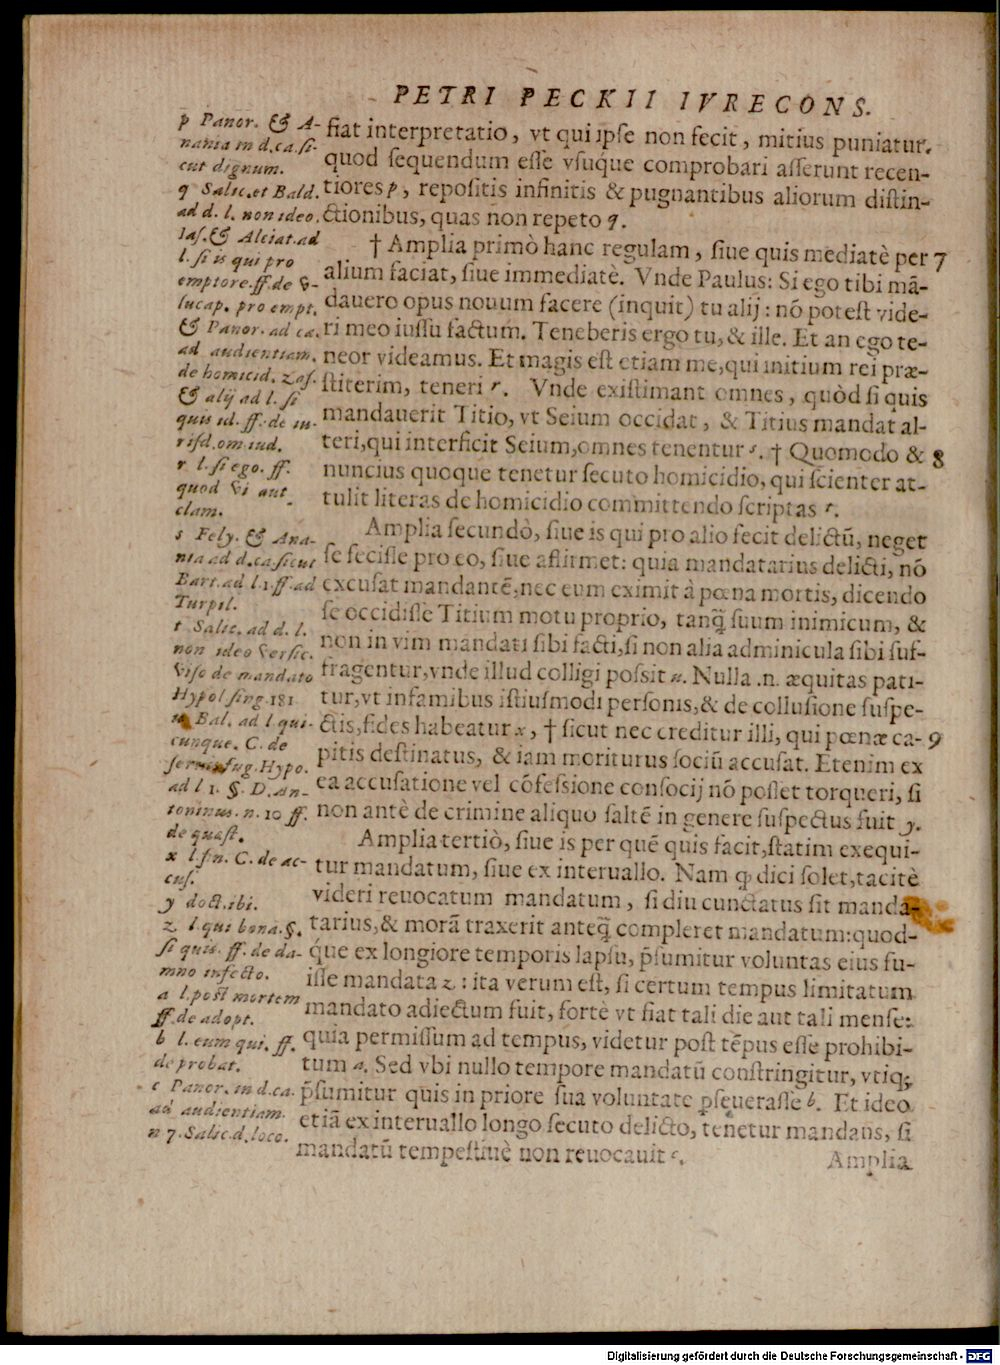 PETRI PECKII IVRECONS.
fiat interpretatio, vt qui ipse non fecit, mitius puniatur.
quod sequendum esse vsuque comprobari asserunt recen-
tiores p, repositis infinitis & pugnantibus aliorum distin-
ctionibus, quas non repeto q.
† Amplia primò hanc regulam, siue quis mediatè per 7
alium faciat, siue immediatè. Vnde Paulus: Si ego tibi mā-
dauero opus nouum facere (inquit) tu alij: nō potest vide-
ri meo iussu factum. Teneberis ergo tu, & ille. Et an ego te-
neor videamus. Et magis est etiam me, qui initium rei præ-
stiterim, teneri r. Vnde existimant omnes, quòd si quis
mandauerit Titio, vt Seium occidat, & Titius mandat al-
teri, qui interficit Seium, omnes tenentur s. † Quomodo & 8
nuncius quoque tenetur secuto homicidio, qui scienter at-
tulit literas de homicidio committendo scriptas t.
Amplia secundò, siue is qui pro alio fecit delictū, neget
se fecisse pro eo, siue affirmet: quia mandatarius delicti, nō
excusat mandantē, nec eum eximit à pœna mortis, dicendo
se occidisse Titium motu proprio, tanq̃ suum inimicum, &
non in vim mandati sibi facti, si non alia adminicula sibi suf-
fragentur, vnde illud colligi possit u. Nulla .n. æquitas pati-
tur, vt infamibus istiusmodi personis, & de collusione suspe-
ctis, fides habeatur x, † sicut nec creditur illi, qui pœnæ ca- 9
pitis destinatus, & iam moriturus sociū accusat. Etenim ex
ea accusatione vel cōfessione consocij nō posset torqueri, si
non antè de crimine aliquo saltē in genere suspectus fuit y.
Amplia tertiò, siue is per quē quis facit, statim exequi-
tur mandatum, siue ex interuallo. Nam ꝙ dici solet, tacitè
videri reuocatum mandatum, si diu cunctatus sit manda-
tarius, & morā traxerit anteq̃ compleret mandatum: quod-
que ex longiore temporis lapsu, p̄sumitur voluntas eius fu-
isse mandata z: ita verum est, si certum tempus limitatum
mandato adiectum fuit, fortè vt fiat tali die aut tali mense:
quia permissum ad tempus, videtur post tēpus esse prohibi-
tum a. Sed vbi nullo tempore mandatū constringitur, vtiq;
p̄sumitur quis in priore sua voluntate pseuerasse b. Et ideo
etiā ex interuallo longo secuto delicto, tenetur mandans, si
mandatū tempestiuè non reuocauit c.
Amplia
p Panor. & A-
nania in d. ca. si-
cut dignum.
q Salic. et Bald.
ad d. l. non ideo.
Ias. & Alciat. ad
l. si is qui pro
emptore. ff. de v-
sucap. pro empt.
& Panor. ad ca.
ad audientiam.
de homicid. Zas.
& alij ad l. si
quis id. ff. de iu-
risd. om. iud.
r l. si ego. ff.
quod vi aut
clam.
s Fely. & Ana-
nia ad d. ca. sicut
Bart. ad l. 1. ff. ad
Turpil.
t Salic. ad d. l.
non ideo versic.
viso de mandato
Hypol. sing. 181
u Bal. ad l. qui-
cunque. C. de
ser. fug. Hypo.
ad l. 1. §. D. An-
toninus. n. 10 ff.
de quæst.
x l. fin. C. de ac-
cus.
y doct. ibi.
z l. qui bona. §.
si quis. ff. de da-
mno infecto.
a l. post mortem
ff. de adopt.
b l. eum qui. ff.
de probat.
c Panor. in d. ca.
ad audientiam.
n 7. Salic. d. loco.
Digitalisierung gefördert durch die Deutsche Forschungsgemeinschaft - DFG